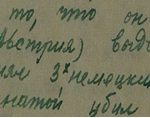 то, что он
Австрия) выдо
3х немецких
натой убил